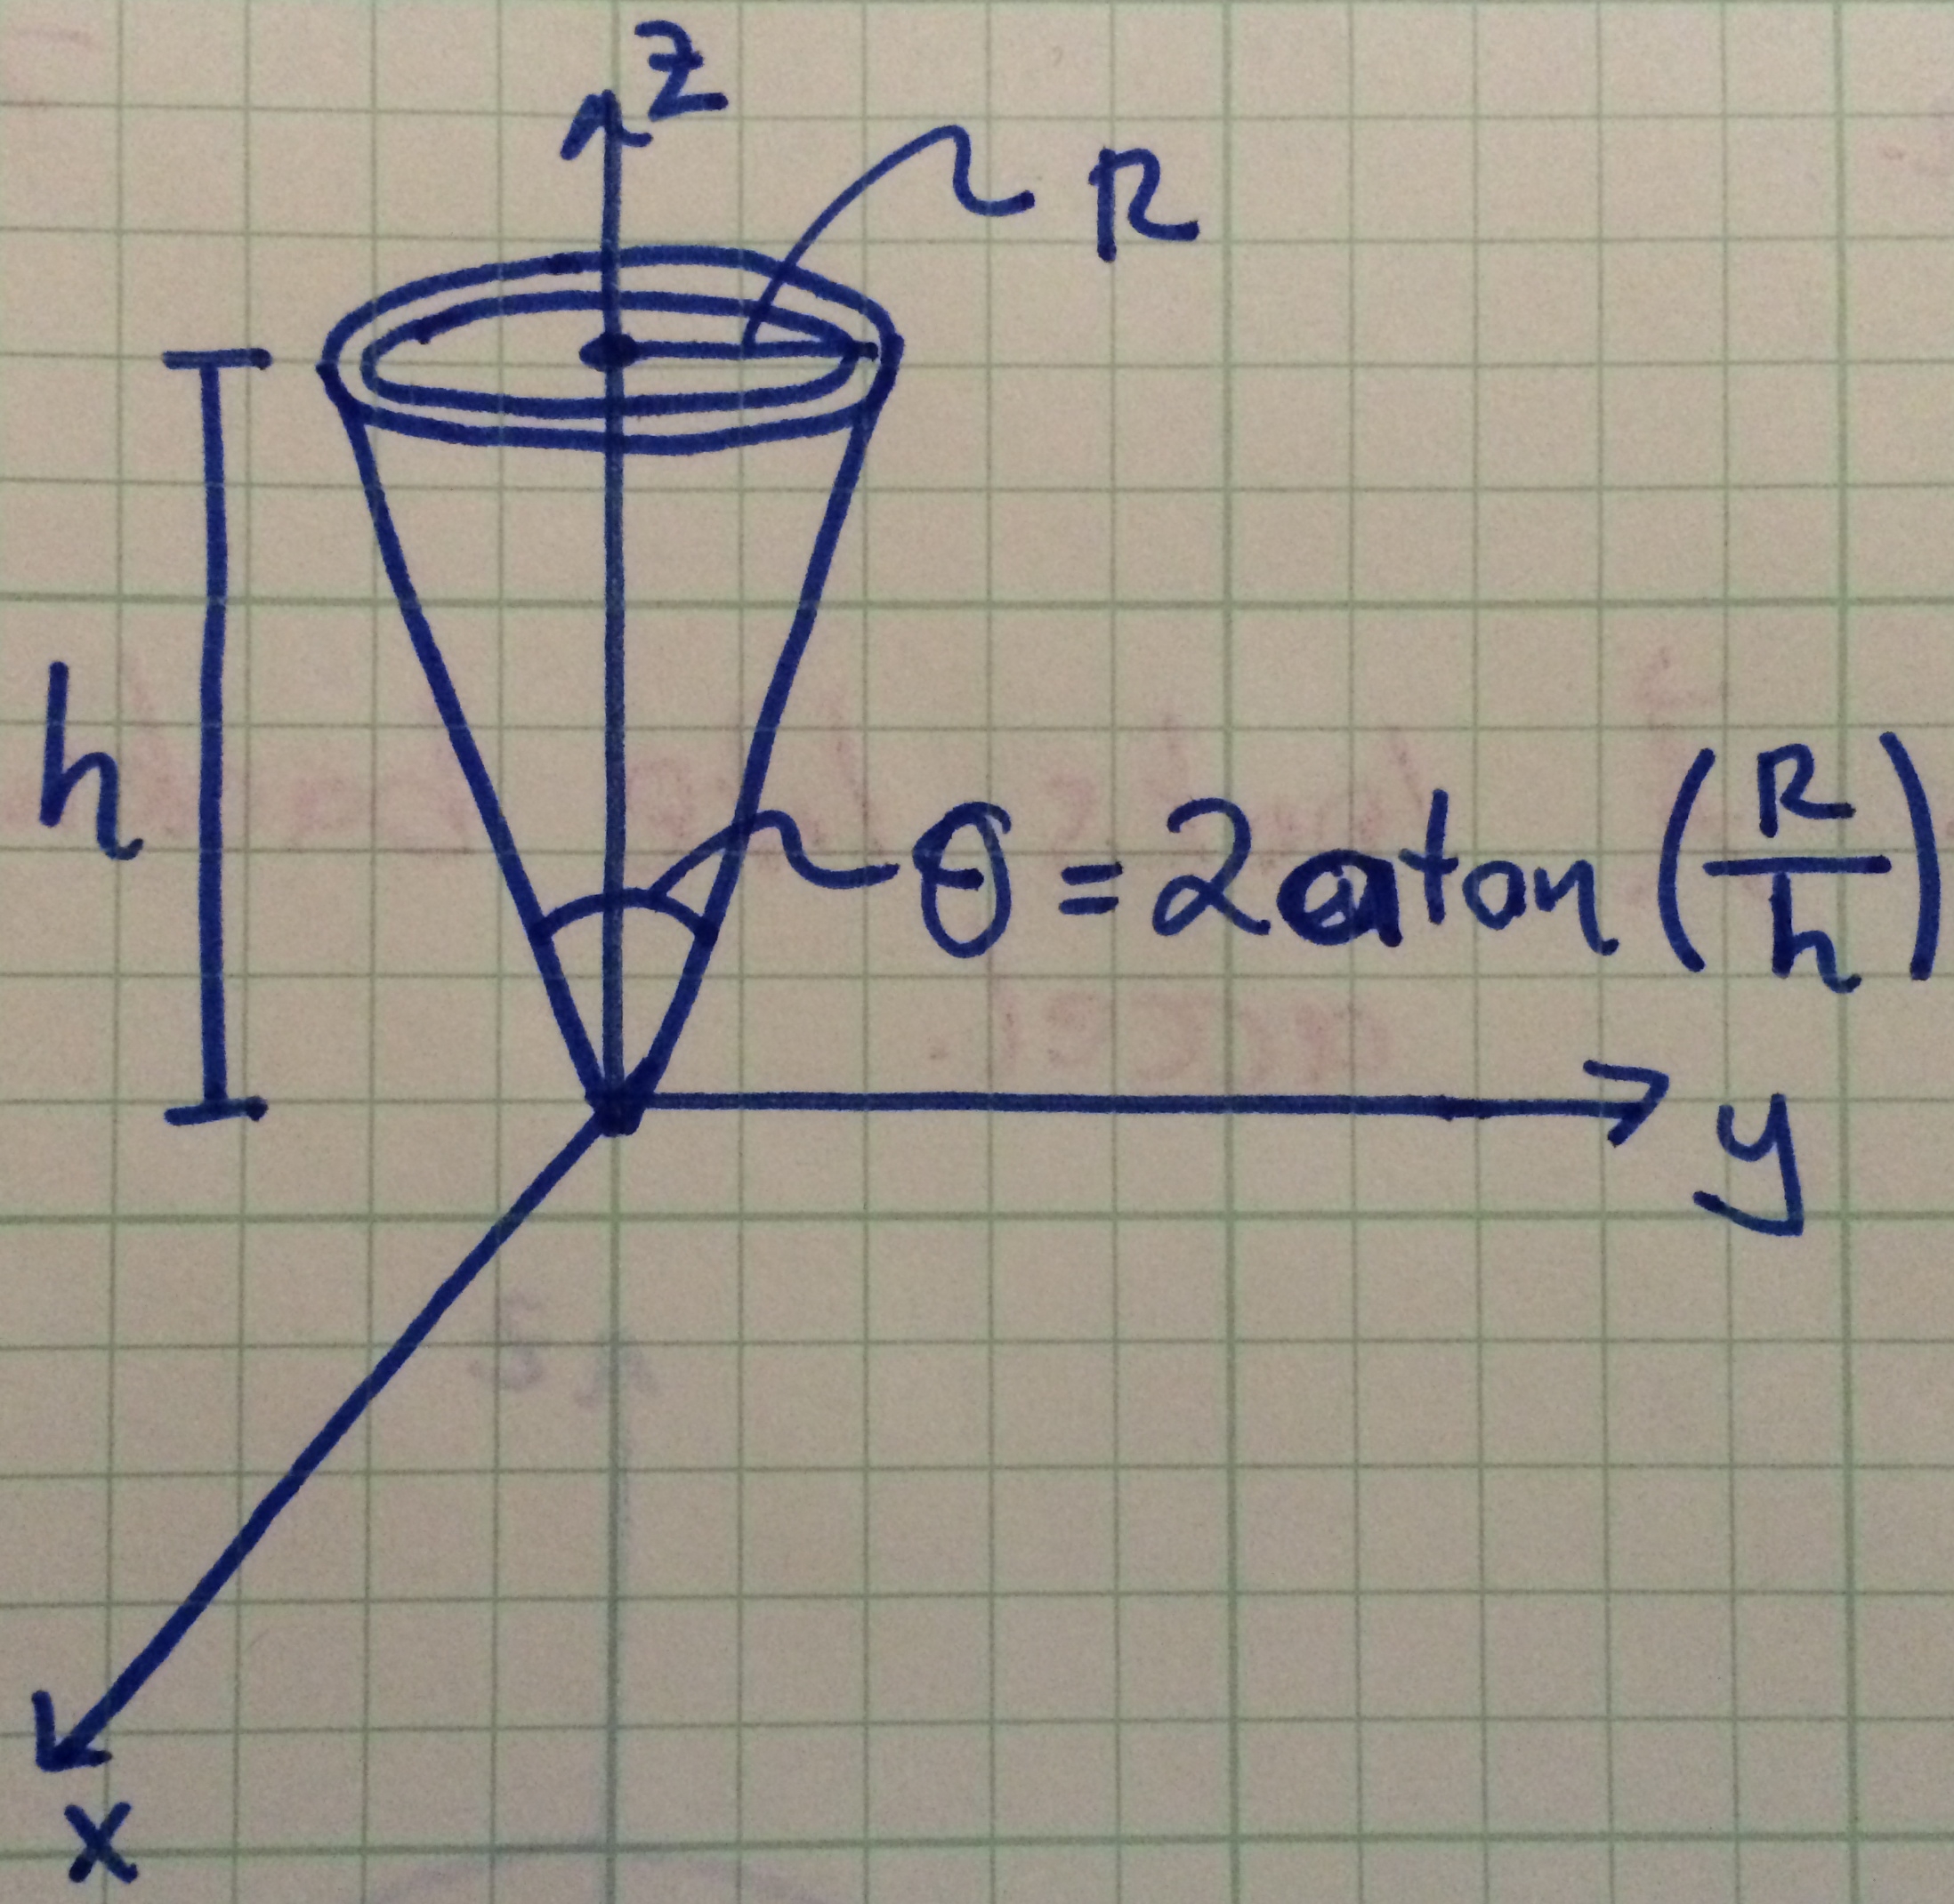 z
R
h
θ = 2atan(R/h)
y
x